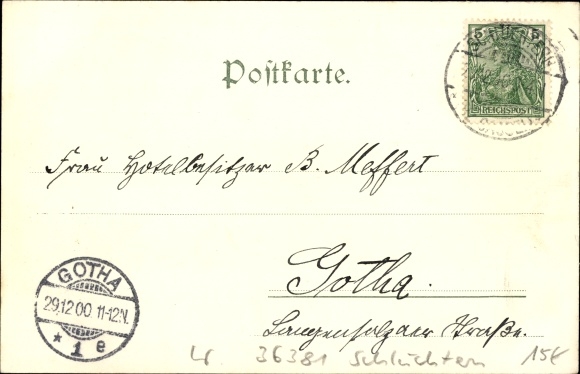 Postkarte.
REICHSPOST
Frau Hotelbesitzer B. Meffert
Gotha.
Langensalzaer Straße.
GOTHA
29.12.00 11-12N.
* 1 e
36381 Schlüchtern 15€